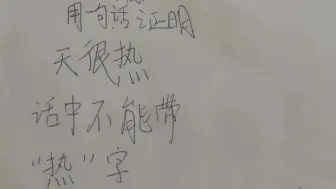 用一句话证明
天很热
话中不能带
“热”字